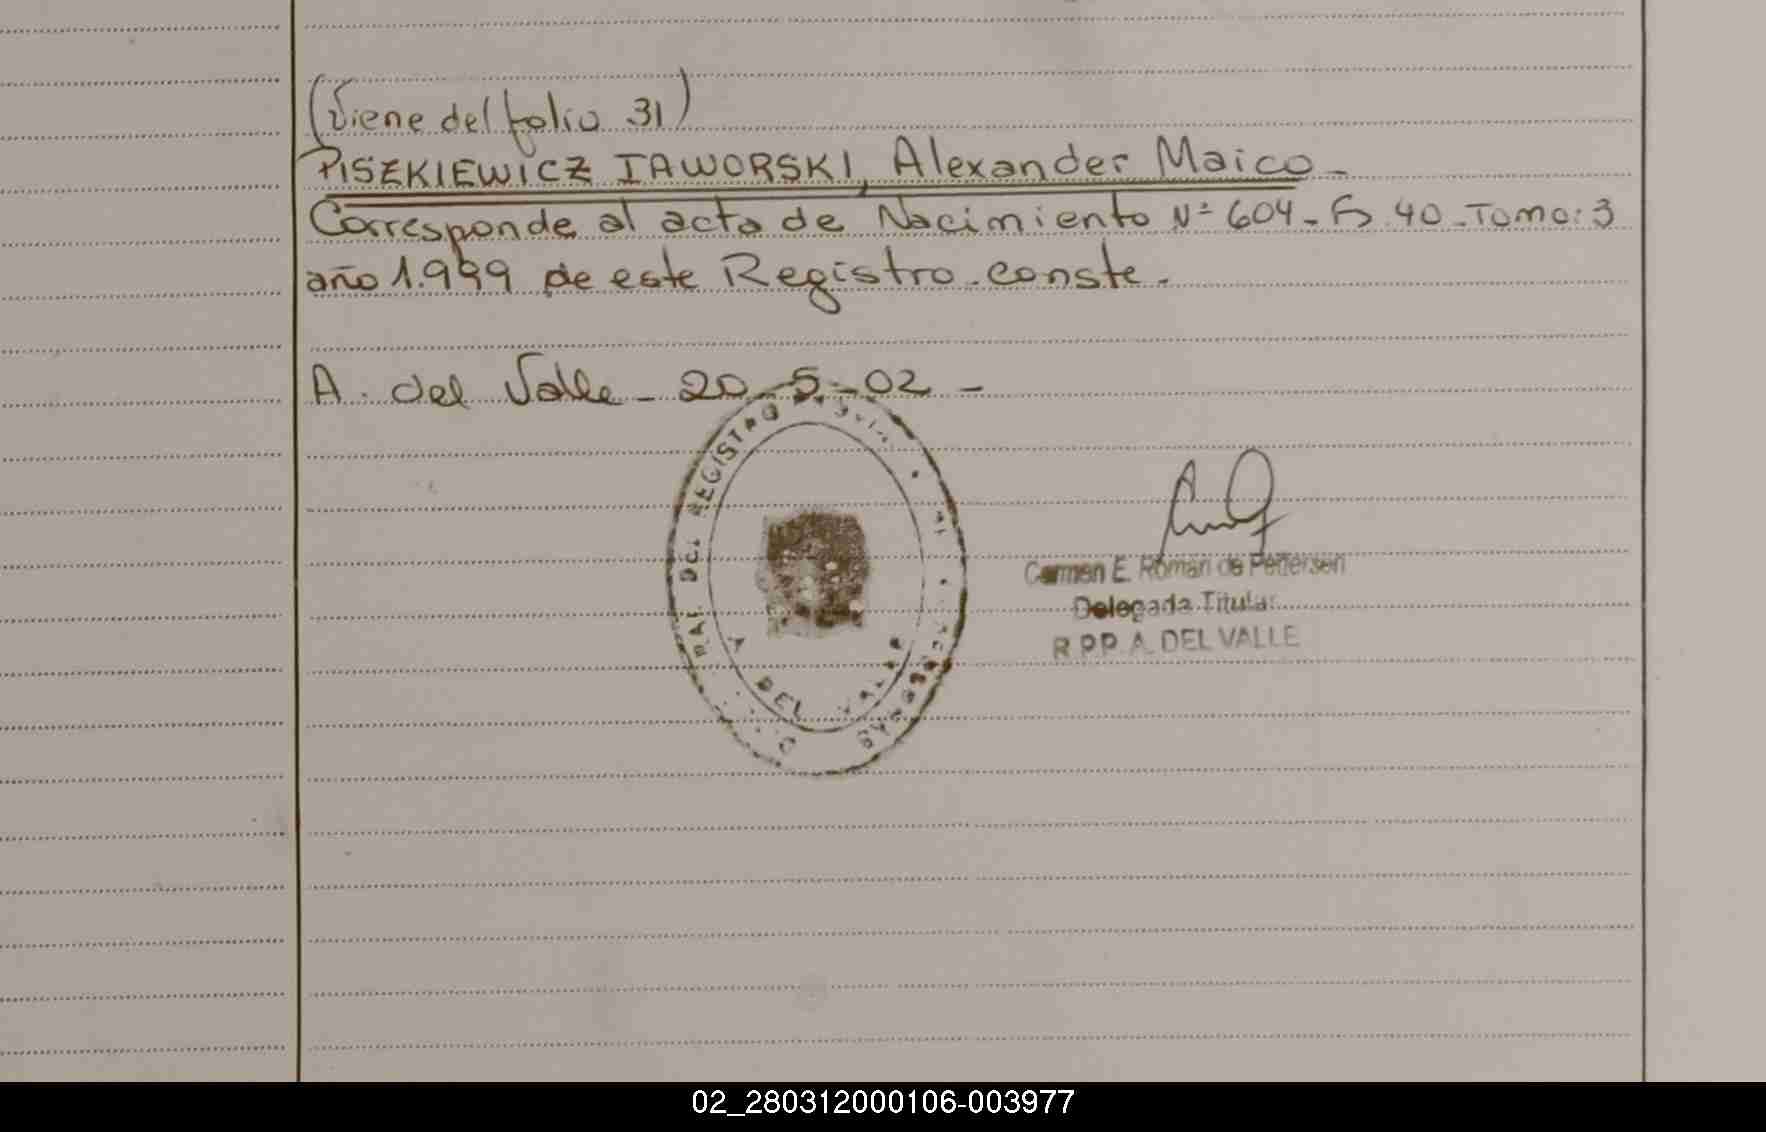 (Viene del folio 31)
PISZKIEWICZ IAWORSKI, Alexander Maico -
Corresponde al acta de Nacimiento Nº 604 - Fs 40 - Tomo: 3
año 1.999 de este Registro. conste.
A. del Valle - 20 - 5 - 02 -
RAL DEL REGISTRO
A DEL
Carmen E. Román de Pettersen
Delegada Titular
R.P.P. A. DEL VALLE
02_280312000106-003977